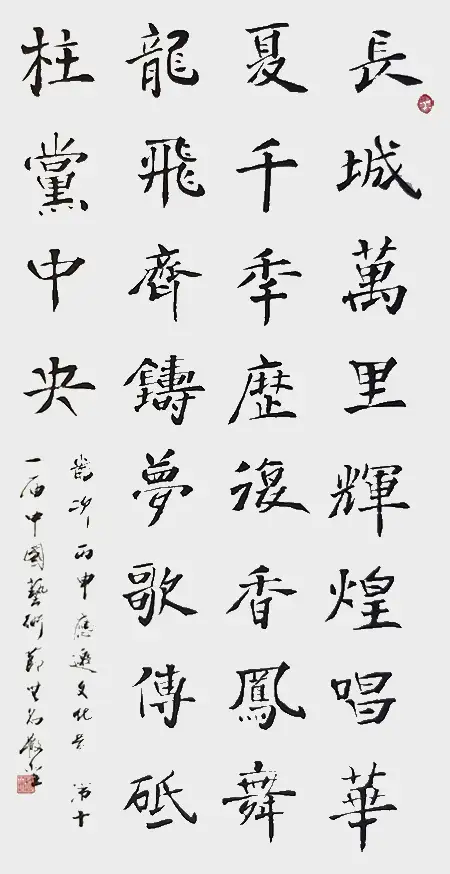 長城萬里輝煌唱華
夏千秊歷復香鳳舞
龍飛齊鑄夢歌傳砥
柱黨中央
歲次丙申應邀文化部第十
一屆中國藝術節